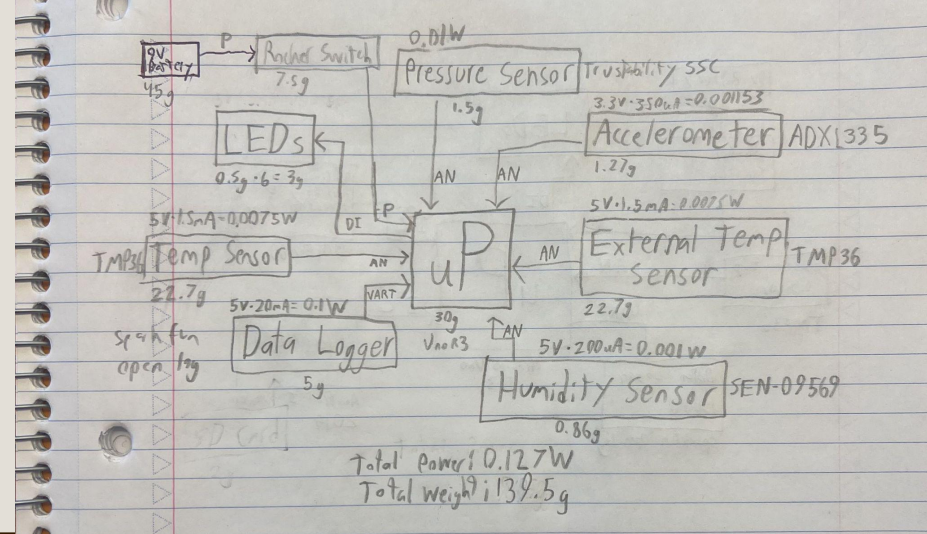 9V
Battery
P
45g
Rocker Switch
7.5g
0.01W
Pressure Sensor
Trustability SSC
1.5g
3.3V·350uA=0.001153
Accelerometer
ADXL335
1.27g
LEDs
0.5g·6=3g
AN
AN
DI
P
5V·1.5mA=0.0075W
TMP36
Temp Sensor
AN
22.7g
uP
30g
UnoR3
5V·1.5mA=0.0075W
External Temp
Sensor
TMP36
AN
22.7g
UART
5V·20mA=0.1W
Data Logger
5g
Sparkfun
open log
AN
5V·200uA=0.001W
Humidity Sensor
SEN-09569
0.86g
SD Card
Total power: 0.127W
Total weight: 139.5g